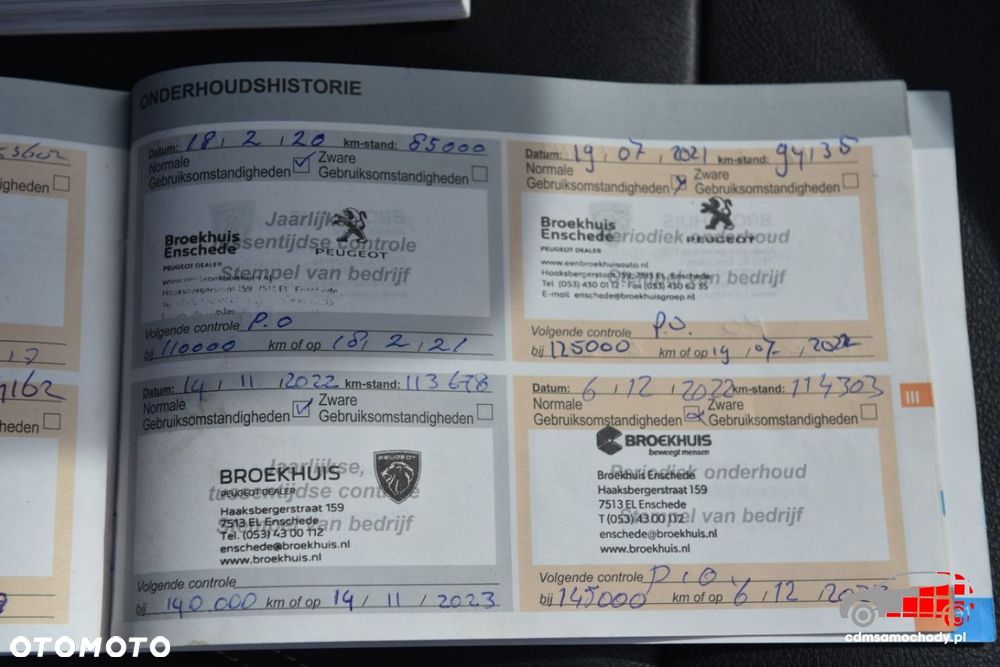 ONDERHOUDSHISTORIE
Datum: 18, 2, 20 km-stand: 85000
Normale Gebruiksomstandigheden
Zware Gebruiksomstandigheden
Jaarlijkse,
tussentijdse controle
Stempel van bedrijf
Broekhuis
Enschede
PEUGEOT DEALER
PEUGEOT
Haaksbergerstraat 159 7513 EL Enschede
Volgende controle P.O
bij 110000 km of op 18, 2, 21
Datum: 19, 07, 2021 km-stand:
Normale Gebruiksomstandigheden
Zware Gebruiksomstandigheden
Periodiek onderhoud
Broekhuis
Enschede
PEUGEOT DEALER
PEUGEOT
www.eenbroekhuisauto.nl
Haaksbergerstraat 159, 7513 EL Enschede
Tel (053) 430 01 12 - Fax (053) 430 62 35
E-mail enschede@broekhuisgroep.nl
Volgende controle P.O.
bij 125000 km of op 19, 07, 2022
Datum: 14, 11, 2022 km-stand: 113678
Normale Gebruiksomstandigheden
Zware Gebruiksomstandigheden
Jaarlijkse,
tussentijdse controle
Stempel van bedrijf
BROEKHUIS
PEUGEOT DEALER
PEUGEOT
Haaksbergerstraat 159
7513 EL Enschede
Tel. (053) 43 00 112
enschede@broekhuis.nl
www.broekhuis.nl
Volgende controle
bij 140000 km of op 14, 11, 2023
Datum: 6, 12, 2022 km-stand: 114303
Normale Gebruiksomstandigheden
Zware Gebruiksomstandigheden
BROEKHUIS
beweegt mensen
Periodiek onderhoud
Stempel van bedrijf
Broekhuis Enschede
Haaksbergerstraat 159
7513 EL Enschede
T (053) 43 00 112
enschede@broekhuis.nl
www.broekhuis.nl
Volgende controle P.O.
bij 145000 km of op 6, 12,
III
OTOMOTO
cdmsamochody.pl